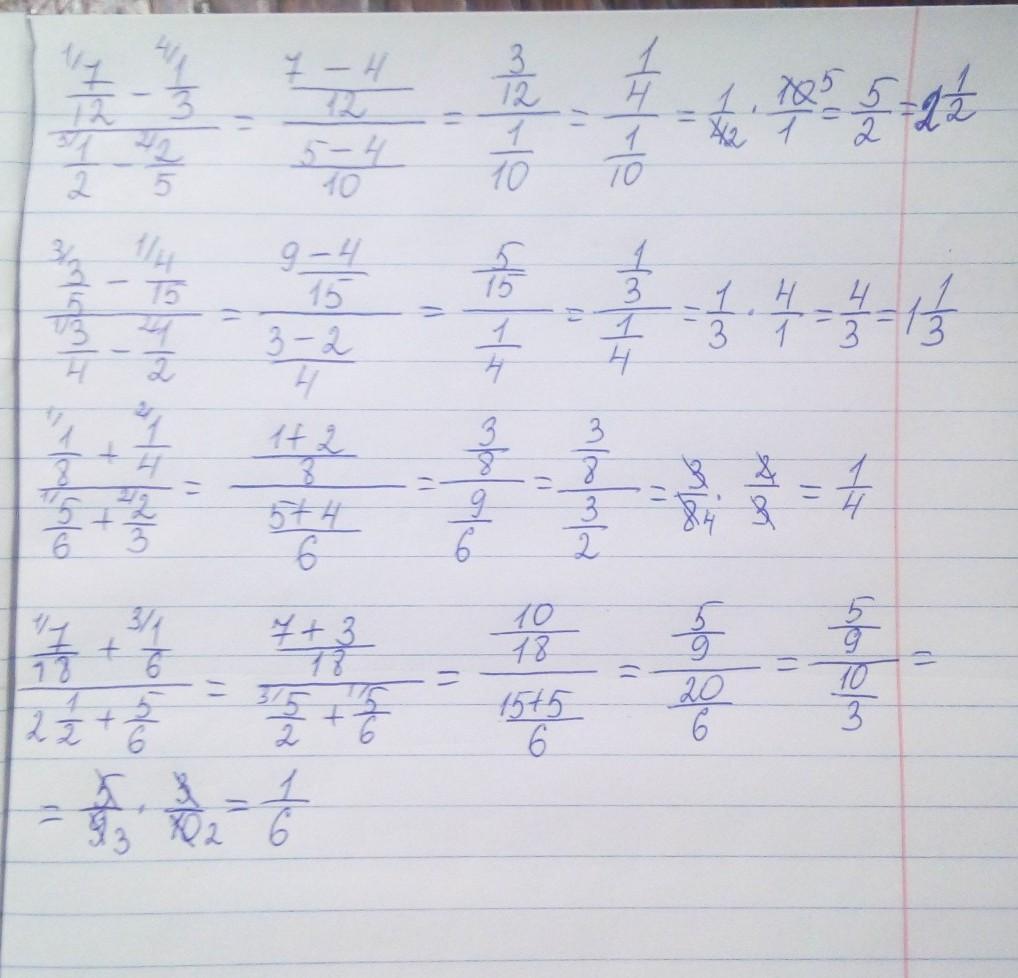 (7/12 - 1/3)/(1/2 - 2/5) = ((7 - 4)/12)/((5 - 4)/10) = (3/12)/(1/10) = (1/4)/(1/10) = 1/4 2 · 10 5/1 = 5/2 = 2 1/2
(3/5 - 4/15)/(3/4 - 1/2) = ((9 - 4)/15)/((3 - 2)/4) = (5/15)/(1/4) = (1/3)/(1/4) = 1/3 · 4/1 = 4/3 = 1 1/3
(1/8 + 1/4)/(5/6 + 2/3) = ((1 + 2)/8)/((5 + 4)/6) = (3/8)/(9/6) = (3/8)/(3/2) = 3/8 4 · 2/3 = 1/4
(7/18 + 1/6)/(2 1/2 + 5/6) = ((7 + 3)/18)/(5/2 + 5/6) = (10/18)/((15 + 5)/6) = (5/9)/(20/6) = (5/9)/(10/3) =
= 5/9 3 · 3/10 2 = 1/6